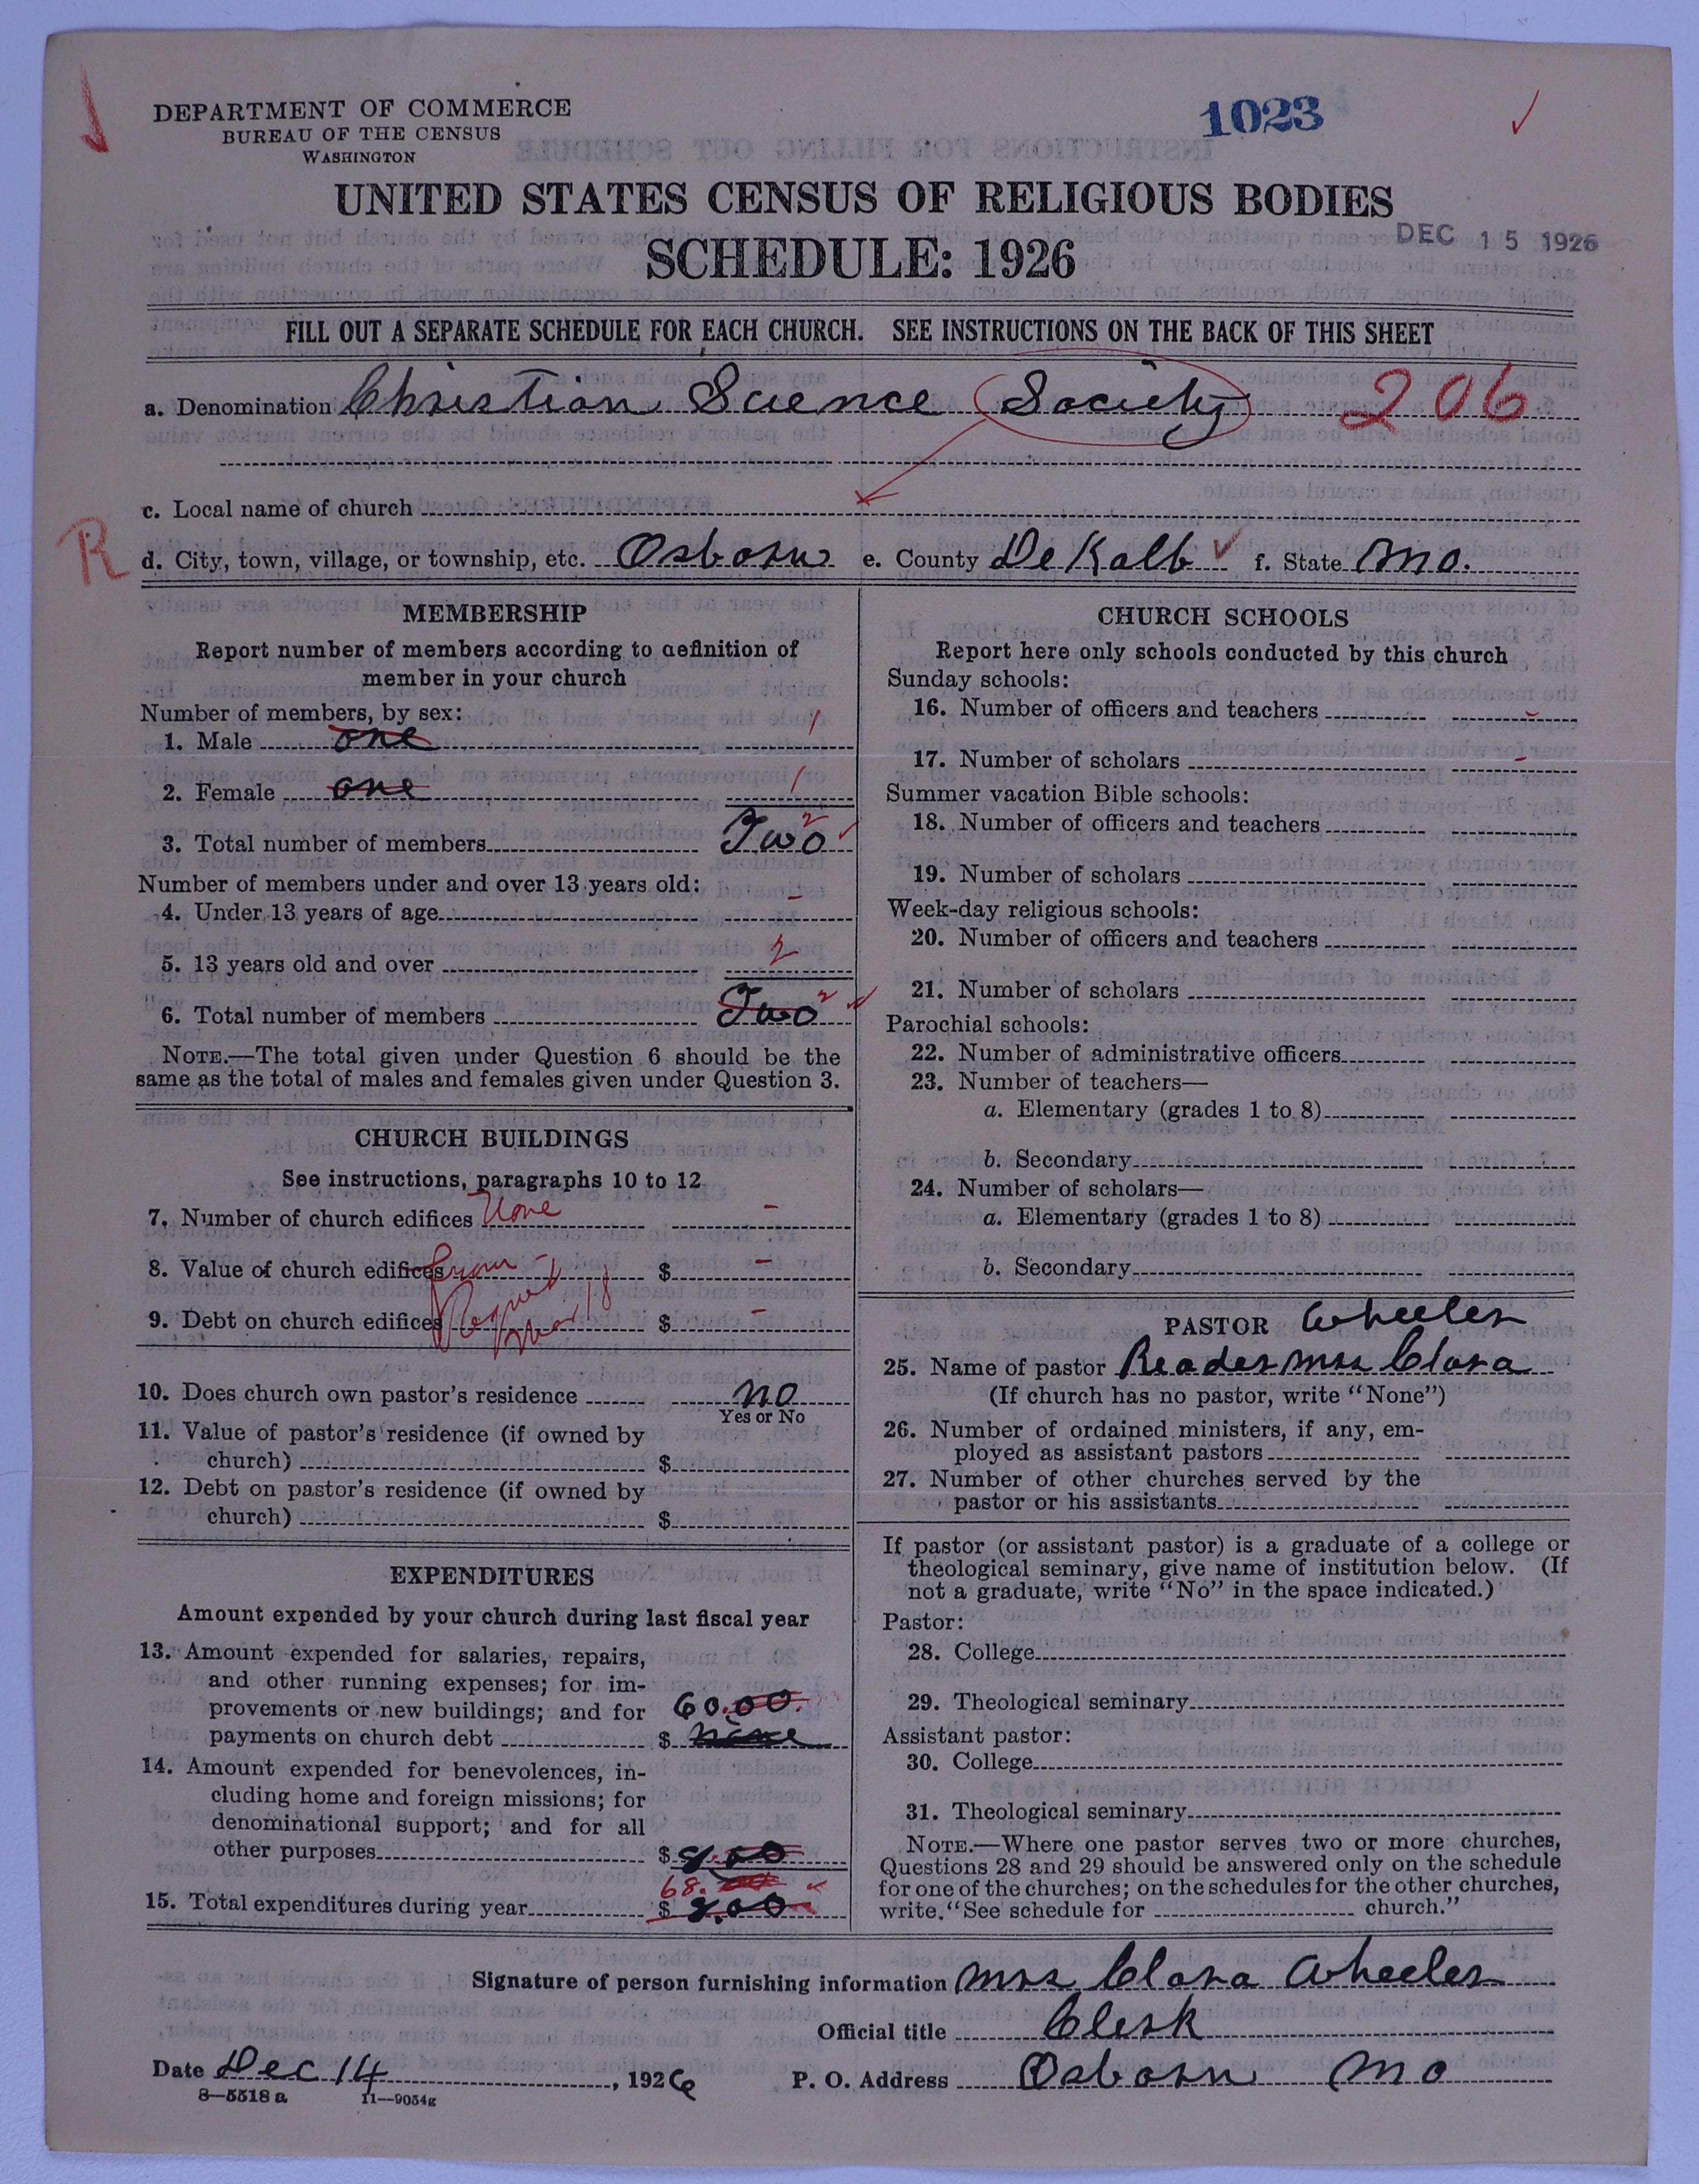 DEPARTMENT OF COMMERCE
BUREAU OF THE CENSUS
WASHINGTON
1023
UNITED STATES CENSUS OF RELIGIOUS BODIES
SCHEDULE: 1926
DEC 15 1926
FILL OUT A SEPARATE SCHEDULE FOR EACH CHURCH. SEE INSTRUCTIONS ON THE BACK OF THIS SHEET
a. Denomination Christian Science Society 206
c. Local name of church
R
d. City, town, village, or township, etc. Osborn e. County DeKalb f. State Mo.
MEMBERSHIP
Report number of members according to definition of
member in your church
Number of members, by sex:
1. Male one 1
2. Female one 1
3. Total number of members Two 2
Number of members under and over 13 years old:
4. Under 13 years of age -
5. 13 years old and over 2
6. Total number of members Two 2
NOTE.—The total given under Question 6 should be the
same as the total of males and females given under Question 3.
CHURCH BUILDINGS
See instructions, paragraphs 10 to 12
7. Number of church edifices None -
8. Value of church edifices $ -
9. Debt on church edifices $ -
10. Does church own pastor's residence no
Yes or No
11. Value of pastor's residence (if owned by
church) $
12. Debt on pastor's residence (if owned by
church) $
EXPENDITURES
Amount expended by your church during last fiscal year
13. Amount expended for salaries, repairs,
and other running expenses; for im-
provements or new buildings; and for 60.00
payments on church debt $ none
14. Amount expended for benevolences, in-
cluding home and foreign missions; for
denominational support; and for all
other purposes $ 8.00
68.
15. Total expenditures during year $ 8.00
CHURCH SCHOOLS
Report here only schools conducted by this church
Sunday schools:
16. Number of officers and teachers -
17. Number of scholars -
Summer vacation Bible schools:
18. Number of officers and teachers
19. Number of scholars
Week-day religious schools:
20. Number of officers and teachers
21. Number of scholars
Parochial schools:
22. Number of administrative officers
23. Number of teachers—
a. Elementary (grades 1 to 8)
b. Secondary
24. Number of scholars—
a. Elementary (grades 1 to 8)
b. Secondary
PASTOR Wheeler
25. Name of pastor Reader Mrs Clara
(If church has no pastor, write "None")
26. Number of ordained ministers, if any, em-
ployed as assistant pastors
27. Number of other churches served by the
pastor or his assistants
If pastor (or assistant pastor) is a graduate of a college or
theological seminary, give name of institution below. (If
not a graduate, write "No" in the space indicated.)
Pastor:
28. College
29. Theological seminary
Assistant pastor:
30. College
31. Theological seminary
NOTE.—Where one pastor serves two or more churches,
Questions 28 and 29 should be answered only on the schedule
for one of the churches; on the schedules for the other churches,
write "See schedule for church."
Signature of person furnishing information Mrs Clara Wheeler
Official title Clerk
Date Dec 14, 1926 P. O. Address Osborn Mo
8—5518 a 11—9054g